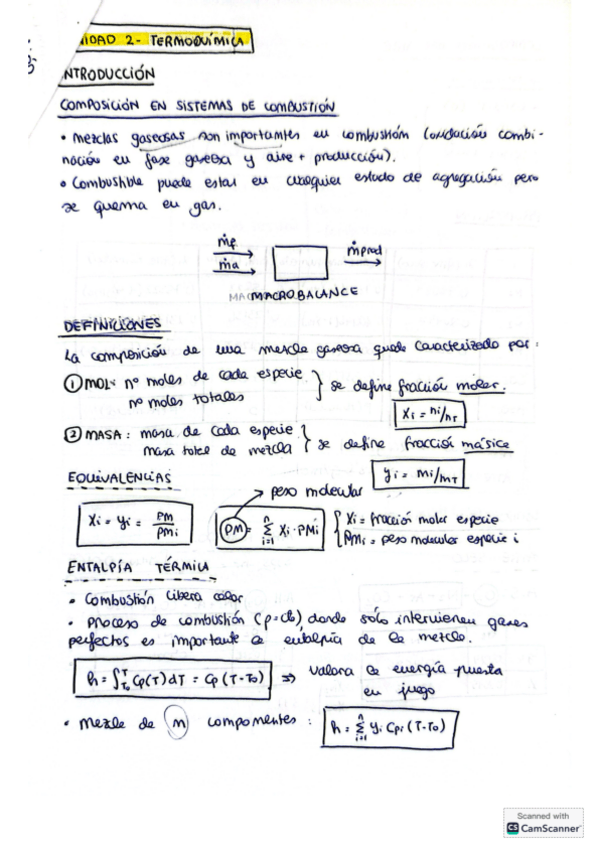 NIDAD 2- TERMOQUÍMICA
INTRODUCCIÓN
COMPOSICIÓN EN SISTEMAS DE COMBUSTIÓN
• mezclas gaseosas son importantes en combustión (oxidación combi-
nación en fase gaseosa y aire + producción).
• Combustible puede estar en cualquier estado de agregación pero
se quema en gas.
ṁf
ṁa
ṁprod
MACROBALANCE
DEFINICIONES
La composición de una mezcla gaseosa queda caracterizado por:
① MOL: nº moles de cada especie
nº moles totales
} se define fracción molar.
Xi = ni/nT
② MASA: masa de cada especie
masa total de mezcla
} se define fracción másica
yi = mi/mT
EQUIVALENCIAS
peso molecular
Xi = yi = PM/PMi
PM = Σ i=1 n Xi·PMi
{ Xi = fracción molar especie
PMi = peso molecular especie i
ENTALPÍA TÉRMICA
• Combustión libera calor
• Proceso de combustión (p=cte) donde sólo intervienen gases
perfectos es importante a entalpia de la mezcla.
h = ∫ T To Cp(T)dT = Cp (T-To) ⇒ valora la energía puesta
en juego
• mezcla de n componentes : h = Σ i=1 n yi Cpi (T-To)
Scanned with
CS CamScanner